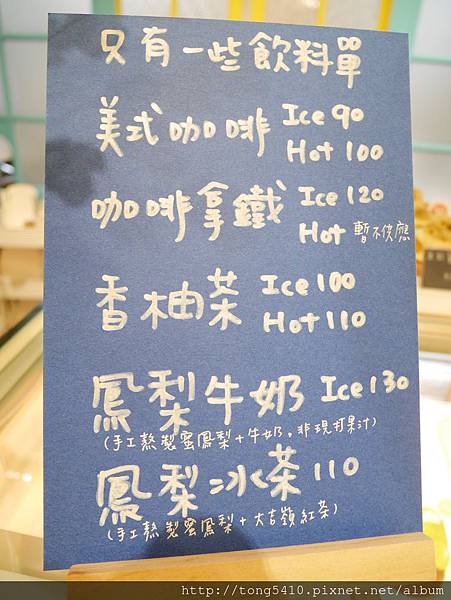 只有一些飲料單
美式咖啡 Ice 90
Hot 100
咖啡拿鐵 Ice 120
Hot 暫不供應
香柚茶 Ice 100
Hot 110
鳳梨牛奶 Ice 130
(手工熬製蜜鳳梨+牛奶,非現打果汁)
鳳梨冰茶 110
(手工熬製蜜鳳梨+大吉嶺紅茶)
http://tong5410.pixnet.net/album